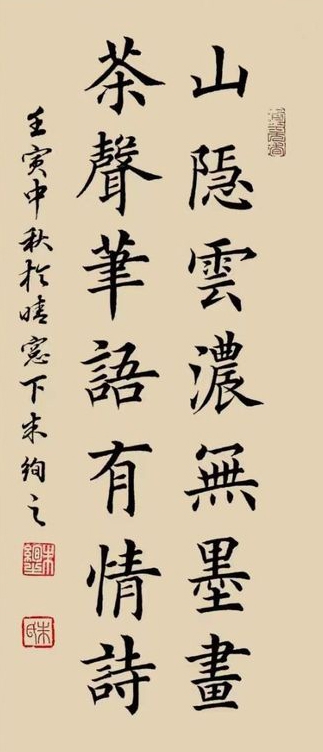 山隐雲濃無墨畫
茶聲筆語有情詩
壬寅中秋於晴窓下朱絢之